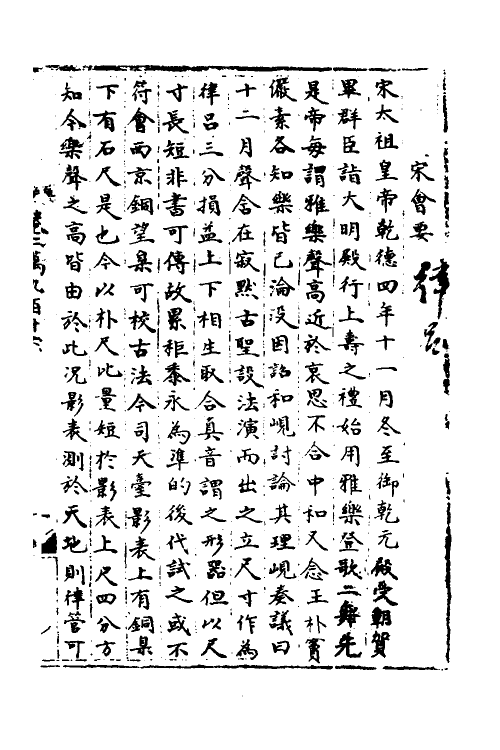 宋會要
律呂
宋太祖皇帝乾德四年十一月冬至御乾元殿受朝賀
畢群臣詣大明殿行上壽之禮始用雅樂登歌二舞先
是帝每謂雅樂聲高近於哀思不合中和又念王朴竇
儼素各知樂皆已淪没因詔和峴討論其理峴奏議曰
十二月聲含在寂默古聖設法演而出之立尺寸作為
律呂三分損益上下相生取合真音謂之形器但以尺
寸長短非書可傳故累秬黍永為準的後代試之或不
符會西京銅望臬可校古法今司天臺影表上有銅臬
下有石尺是也今以朴尺比量短於影表上尺四分方
知今樂聲之高皆由於此况影表測於天地則律管可